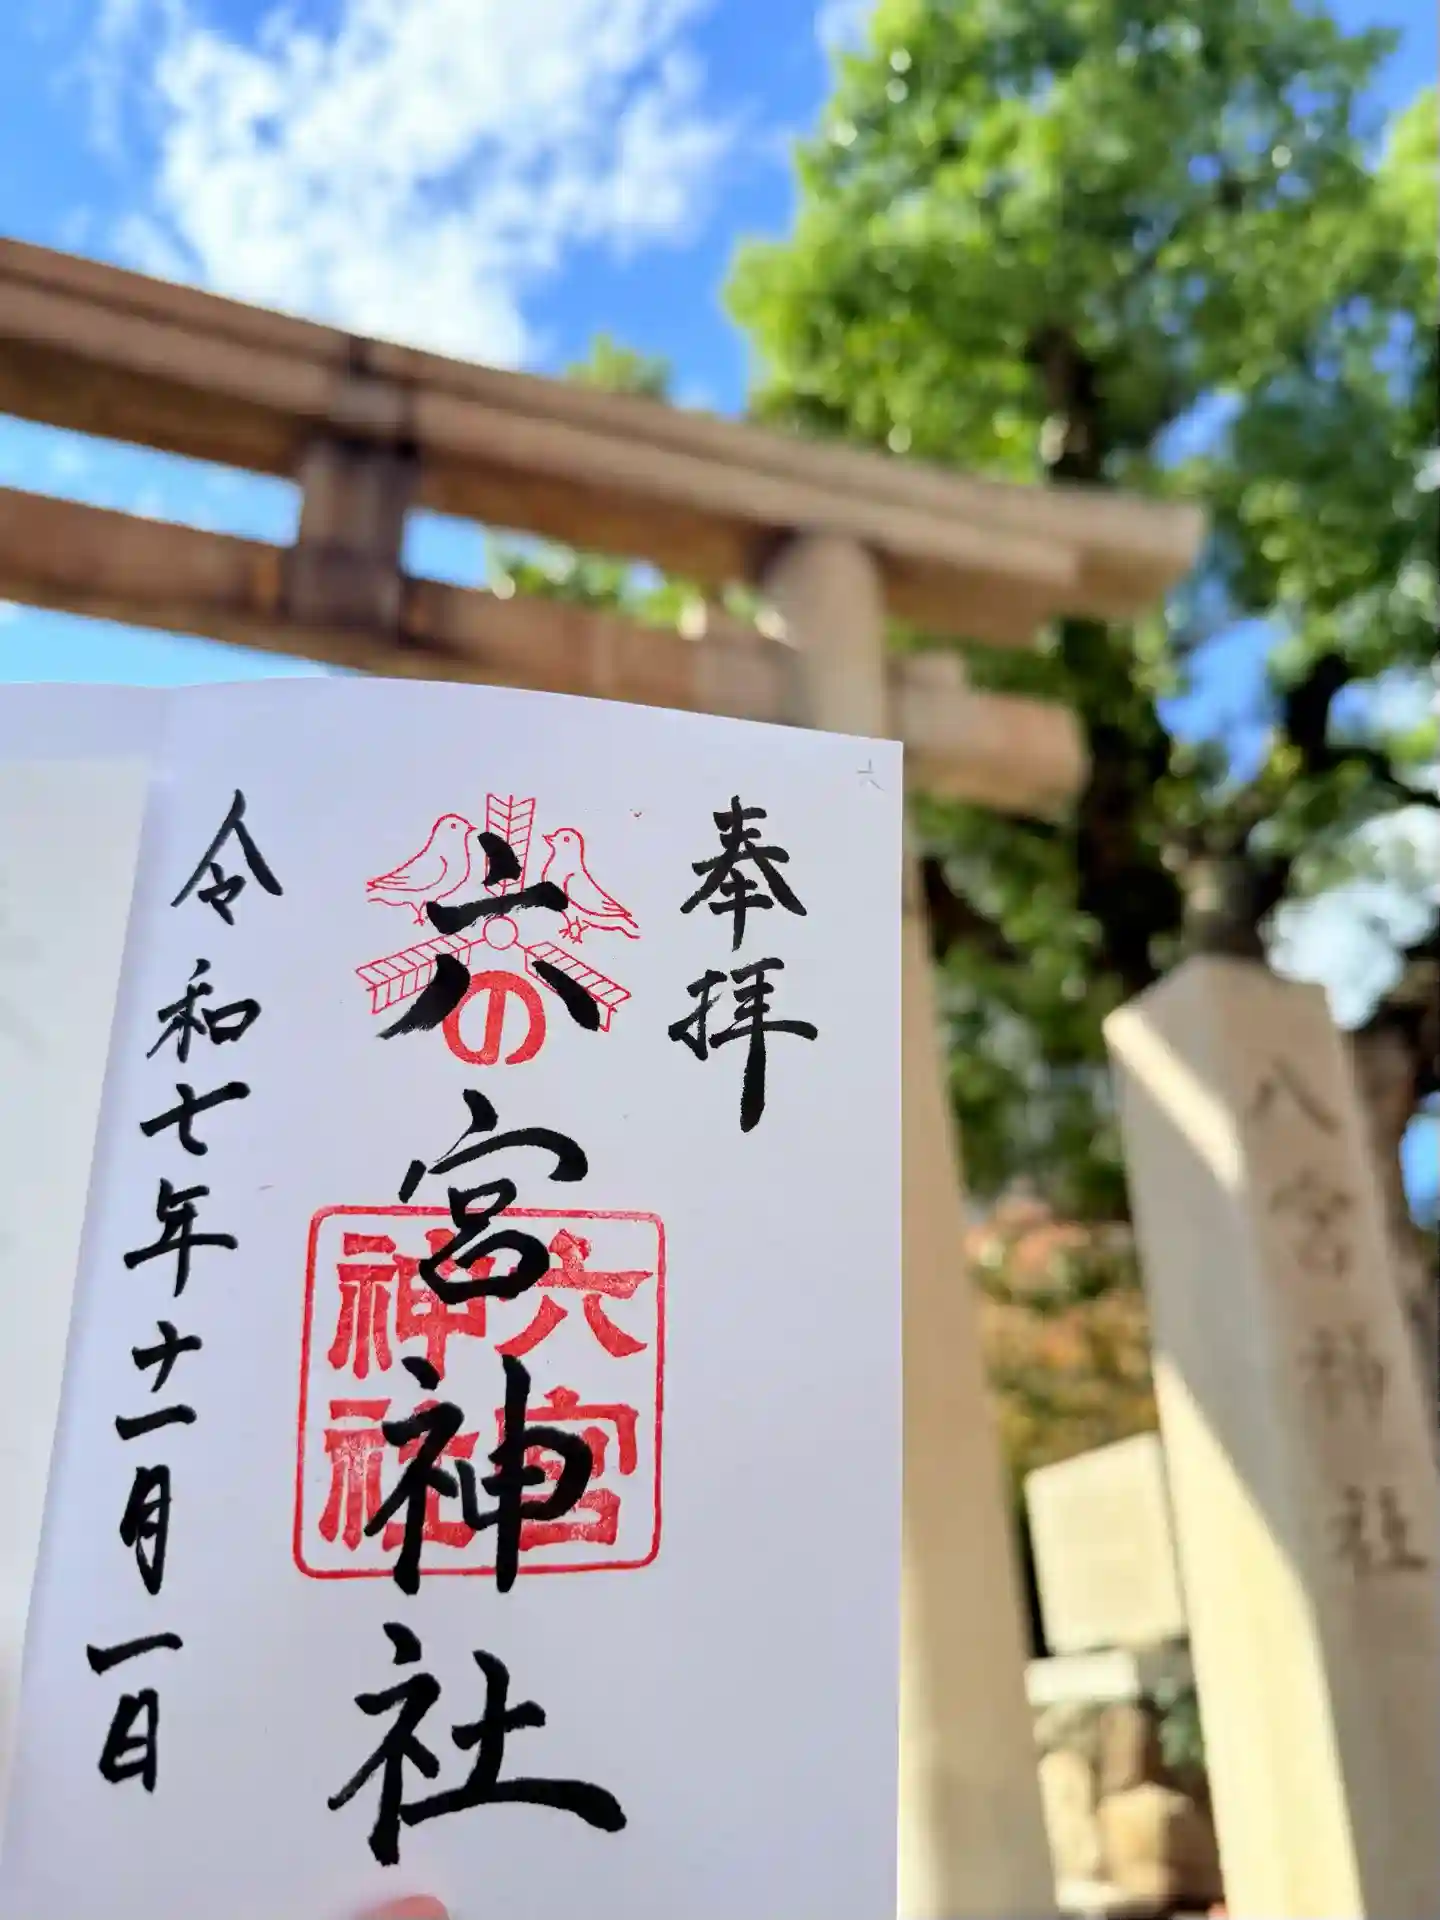 六
奉拝
六宮神社
の
六宮
神社
令和七年十一月一日
八宮神社